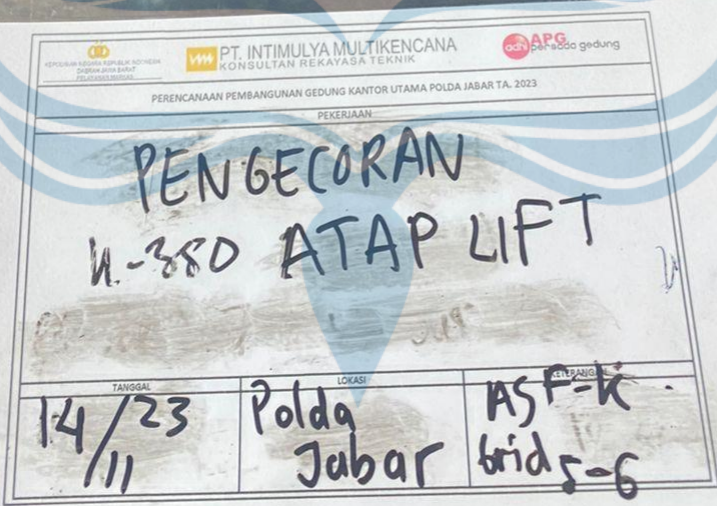 KEPOLISIAN NEGARA REPUBLIK INDONESIA
DAERAH JAWA BARAT
PT. INTIMULYA MULTIKENCANA
KONSULTAN REKAYASA TEKNIK
adhi APG
persada gedung
PERENCANAAN PEMBANGUNAN GEDUNG KANTOR UTAMA POLDA JABAR TA. 2023
PEKERJAAN
PENGECORAN
K-350 ATAP LIFT
TANGGAL
14/11/23
LOKASI
Polda
Jabar
KETERANGAN
AS F-K
Grid 5-6